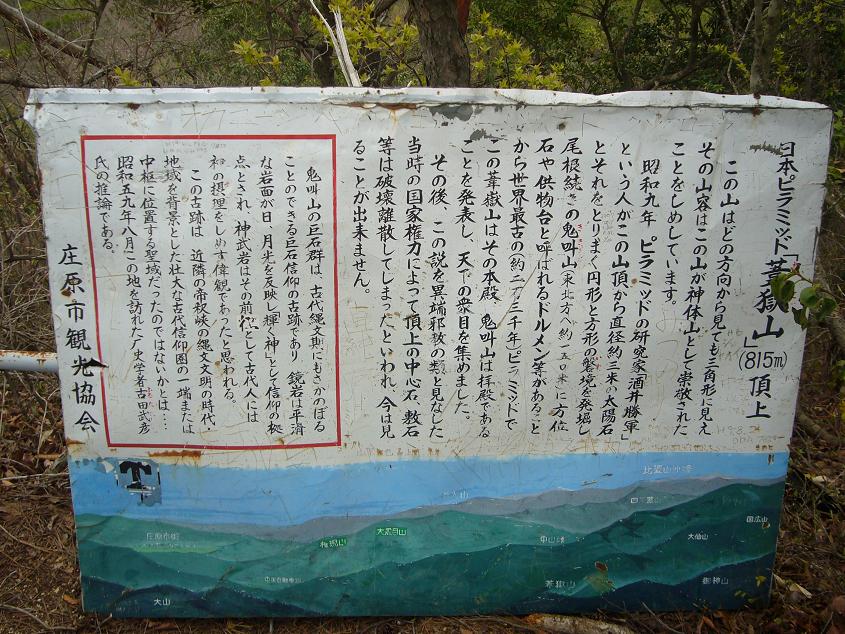 日本ピラミッド「葦嶽山」(815m)頂上
この山はどの方向から見ても三角形に見え
その山容はこの山が神体山として崇敬された
ことをしめしています。
昭和九年 ピラミッドの研究家「酒井勝軍」
という人がこの山頂から直径約三米の太陽石
とそれをとりまく円形と方形の磐境を発掘し
尾根続きの鬼叫山(東北方へ約一五〇米)に方位
石や供物台と呼ばれるドルメン等があること
から世界最古の(約二万三千年)ピラミッドで
この葦嶽山はその本殿、鬼叫山は拝殿である
ことを発表し、天下の衆目を集めました。
その後、この説を異端邪教の類と見なした
当時の国家権力によって頂上の中心石、敷石
等は破壊離散してしまったといわれ、今は見
ることが出来ません。
鬼叫山の巨石群は、古代縄文期にもさかのぼる
ことのできる巨石信仰の古跡であり 鏡岩は平滑
な岩面が日、月光を反映し「輝く神」として信仰の極
点とされ、神武岩はその前 として古代人には
神の摂理をしめす偉観であったと思われる。
この古跡は 近隣の帝釈峡の縄文文明の時代
地域を背景とした壮大な古代信仰圏の一端または
中枢に位置する聖域だったのではないかとは…
昭和五九年八月この地を訪れた广史学者古田武彦
氏の推論である。
庄原市観光協会
H9.8.2
比婆山
国広山
大黒目山
大仙山
葦嶽山
御神山
大山